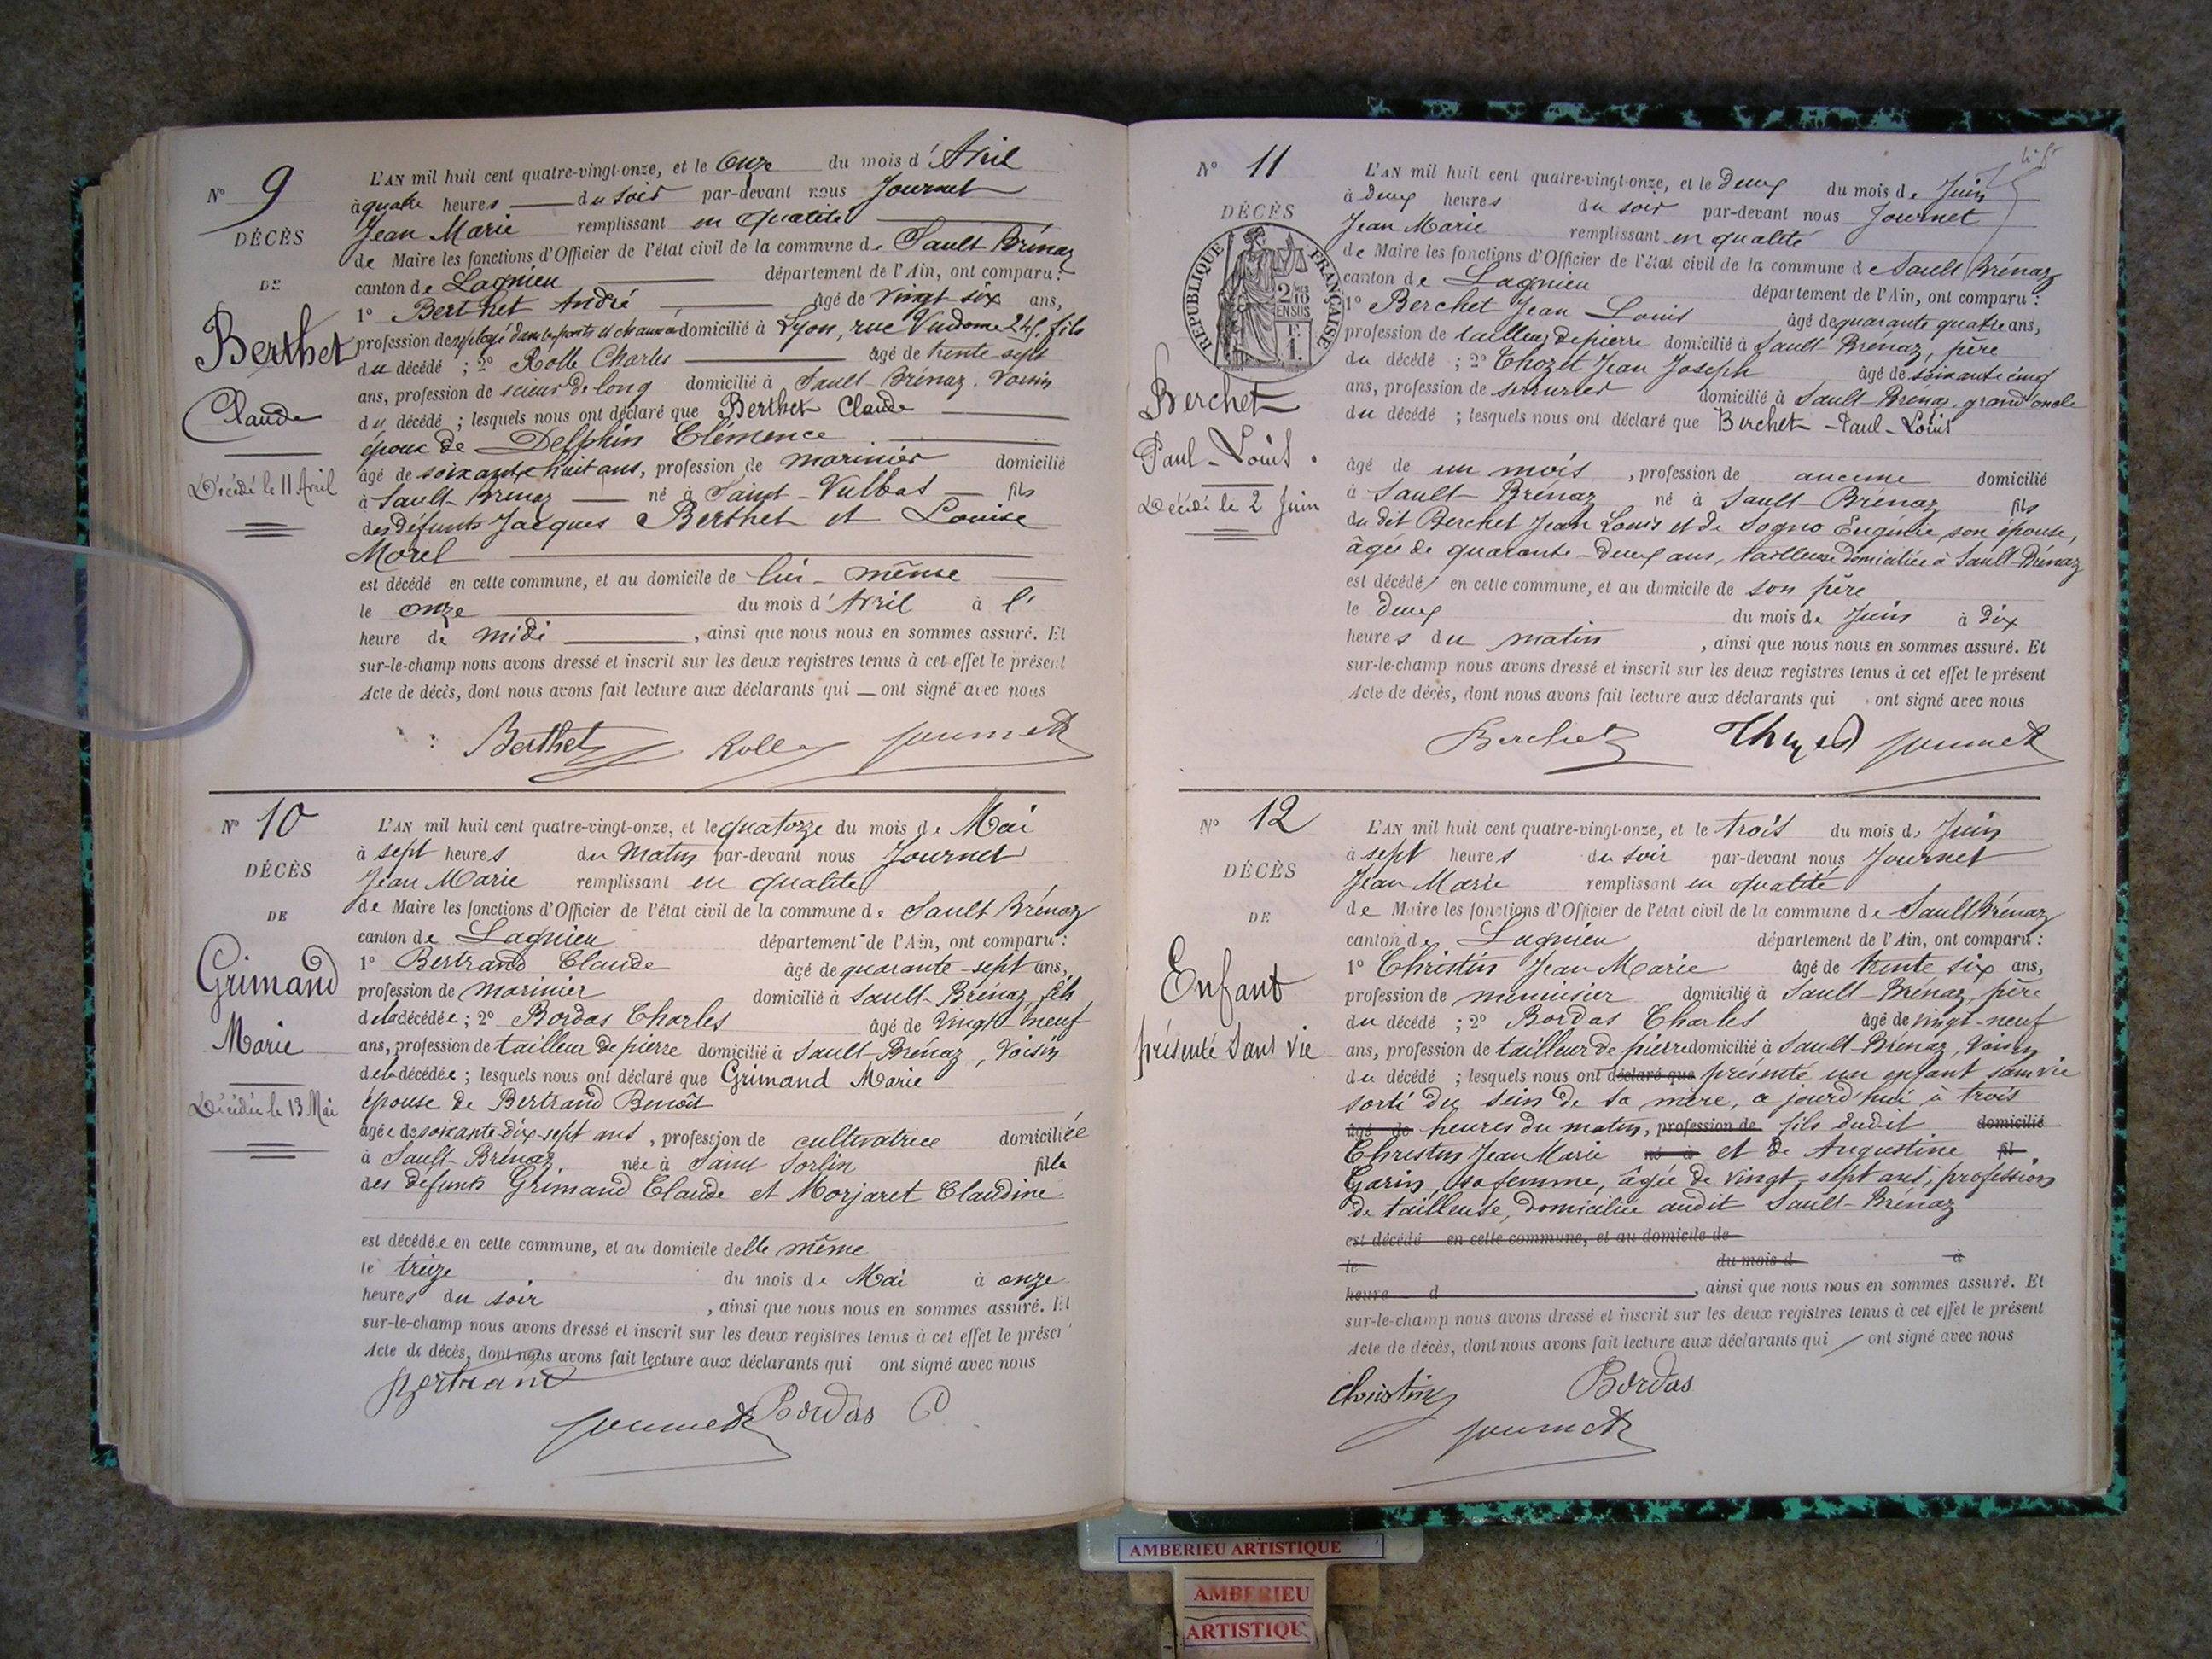 N° 9
DÉCÈS
DE
Berthet
Claude
Décédé le 11 Avril
L'AN mil huit cent quatre-vingt-onze, et le Onze du mois d'Avril
à quatre heures du soir par-devant nous Journet
Jean Marie remplissant en qualité
de Maire les fonctions d'Officier de l'état civil de la commune de Sault-Brénaz
canton de Lagnieu département de l'Ain, ont comparu :
1° Berthet André âgé de Vingt-six ans,
profession d'employé dans les ponts et chaussées domicilié à Lyon, rue Vendome 245, fils
du décédé ; 2° Rolle Charles âgé de trente-sept
ans, profession de scieur de long domicilié à Sault-Brénaz, Voisin
du décédé ; lesquels nous ont déclaré que Berthet Claude
époux de Delphin Clémence
âgé de soixante huit ans, profession de marinier domicilié
à Sault-Brénaz né à Saint-Vulbas fils
des défunts Jacques Berthet et Louise
Morel
est décédé en cette commune, et au domicile de lui-même
le onze du mois d'Avril à l'
heure de midi , ainsi que nous nous en sommes assuré. Et
sur-le-champ nous avons dressé et inscrit sur les deux registres tenus à cet effet le présent
Acte de décès, dont nous avons fait lecture aux déclarants qui ont signé avec nous
Berthet Rolle Journet
N° 10
DÉCÈS
DE
Grimand
Marie
Décédée le 13 Mai
L'AN mil huit cent quatre-vingt-onze, et le quatorze du mois de Mai
à sept heures du Matin par-devant nous Journet
Jean Marie remplissant en qualité
de Maire les fonctions d'Officier de l'état civil de la commune de Sault Brénaz
canton de Lagnieu département de l'Ain, ont comparu :
1° Bertrand Claude âgé de quarante-sept ans,
profession de marinier domicilié à Sault-Brénaz, fils
de la décédée ; 2° Bordas Charles âgé de Vingt-neuf
ans, profession de tailleur de pierre domicilié à Sault-Brénaz, Voisin
de la décédée ; lesquels nous ont déclaré que Grimand Marie
épouse de Bertrand Benoît
âgée de soixante-dix-sept ans , profession de cultivatrice domiciliée
à Sault-Brénaz née à Saint Sorlin fille
des défunts Grimand Claude et Morjaret Claudine
est décédée en cette commune, et au domicile d'elle même
le treize du mois de Mai à onze
heures du soir , ainsi que nous nous en sommes assuré. Et
sur-le-champ nous avons dressé et inscrit sur les deux registres tenus à cet effet le présent
Acte de décès, dont nous avons fait lecture aux déclarants qui ont signé avec nous
Bertrand
Journet Bordas C
N° 11
DÉCÈS
REPUBLIQUE FRANÇAISE
Berchet
Paul-Louis.
Décédé le 2 Juin
L'AN mil huit cent quatre-vingt-onze, et le deux du mois de Juin
à deux heures du soir par-devant nous Journet
Jean Marie remplissant en qualité
de Maire les fonctions d'Officier de l'état civil de la commune de Sault Brénaz
canton de Lagnieu département de l'Ain, ont comparu :
1° Berchet Jean Louis âgé de quarante quatre ans,
profession de tailleur de pierre domicilié à Sault-Brénaz, père
du décédé ; 2° Thozet Jean Joseph âgé de soixante cinq
ans, profession de serrurier domicilié à Sault-Brénaz, grand'oncle
du décédé ; lesquels nous ont déclaré que Berchet-Paul-Louis
âgé de un mois , profession de aucune domicilié
à Sault-Brénaz né à Sault-Brénaz fils
du dit Berchet Jean Louis et de Sogno Eugénie, son épouse,
âgée de quarante-deux ans, tailleuse domiciliée à Sault-Brénaz
est décédé en cette commune, et au domicile de son père
le deux du mois de Juin à dix
heures du matin , ainsi que nous nous en sommes assuré. Et
sur-le-champ nous avons dressé et inscrit sur les deux registres tenus à cet effet le présent
Acte de décès, dont nous avons fait lecture aux déclarants qui ont signé avec nous
Berchet Thozet Journet
N° 12
DÉCÈS
DE
Enfant
présenté Sans vie
L'AN mil huit cent quatre-vingt-onze, et le trois du mois de Juin
à sept heures du soir par-devant nous Journet
Jean Marie remplissant en qualité
de Maire les fonctions d'Officier de l'état civil de la commune de Sault Brénaz
canton de Lagnieu département de l'Ain, ont comparu :
1° Christin Jean Marie âgé de trente six ans,
profession de menuisier domicilié à Sault-Brénaz, père
du décédé ; 2° Bordas Charles âgé de vingt-neuf
ans, profession de tailleur de pierre domicilié à Sault-Brénaz, Voisin
du décédé ; lesquels nous ont déclaré que présenté un enfant sans vie
sorti du sein de sa mère, a jourd'hui à trois
âgé de heures du matin, profession de fils dudit domicilié
Christin Jean Marie né à et de Augustine fil
Garin, sa femme, âgée de vingt-sept ans, profession
de tailleuse, domiciliée audit Sault-Brénaz
est décédé en cette commune, et au domicile de
le du mois d à
heure d , ainsi que nous nous en sommes assuré. Et
sur-le-champ nous avons dressé et inscrit sur les deux registres tenus à cet effet le présent
Acte de décès, dont nous avons fait lecture aux déclarants qui ont signé avec nous
Christin Bordas
Journet
AMBERIEU ARTISTIQUE
AMBERIEU
ARTISTIQU